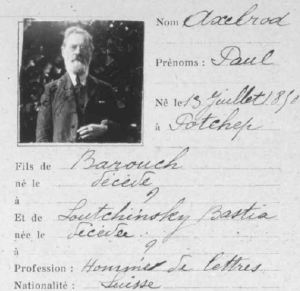 Nom Axelrod
Prénoms : Paul
Né le 13 Juillet 1850
à Potchep
Fils de Barouch
né le décédé
à ?
Et de Loutchinsky Bastia
née le décédée
à ?
Profession : Homme de lettres
Nationalité : Suisse